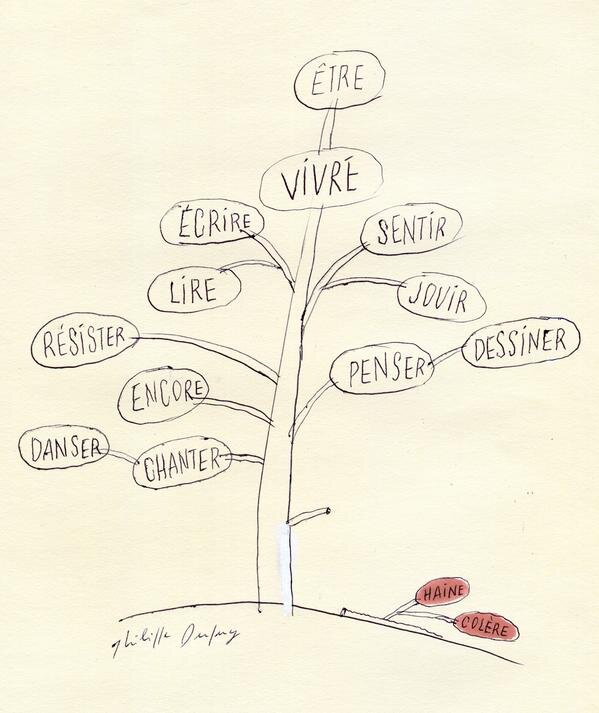 ÊTRE
VIVRE
ÉCRIRE
SENTIR
LIRE
JOUIR
RÉSISTER
PENSER
DESSINER
ENCORE
DANSER
CHANTER
HAINE
COLÈRE
Philippe Dupuy